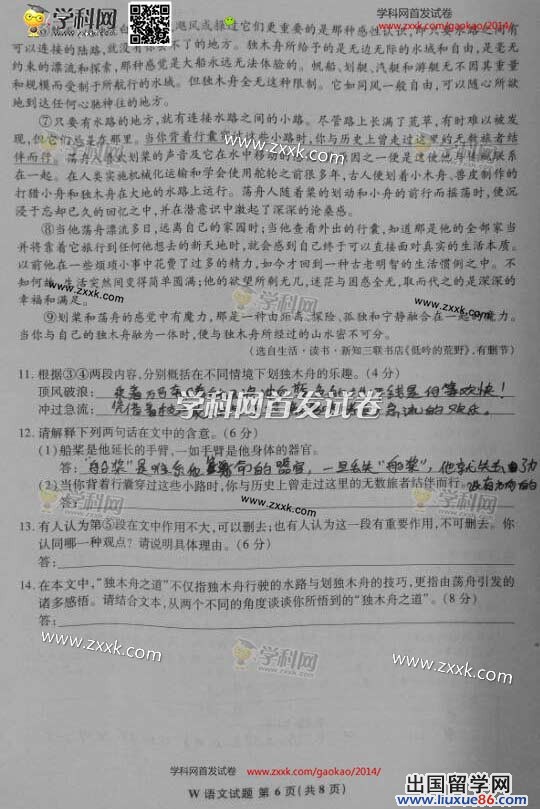 学科网
WWW.ZXXK.COM
学科网首发试卷
www.zxxk.com/gaokao/2014/
可以连接的陆路,就没有你去不了的地方。独木舟所给予的是无边无际的水域和自由,是毫无
约束的漂流和探索,那种感觉是大船永远无法体验的。帆船、划艇、汽艇和游艇无不因其重量
和规模而受制于所航行的水域。但独木舟全无这种限制。它如同风一般自由,可以随心所欲
地到达任何心驰神往的地方。
⑦只要有水路的地方,就有连接水路之间的小路。尽管路上长满了荒草,有时难以被发
现,但它们总是在那里。当你背着行囊穿过这些小路时,你与历史上曾走过这里的无数旅者结
伴而行。荡舟人喜欢划桨的声音及它在水中移动的
因之一便是这使他与传统联系
在一起。在人类实施机械化运输和学会使用舵轮之前很多年,古人便划着小木舟、兽皮制作的
打猎小舟和独木舟在大地的水路上运行。荡舟人随着桨的划动和小舟的前行而摇荡时,便沉
浸于忘却已久的回忆之中,并在潜意识中激起了深深的沧桑感。
⑧当他荡舟漂流多日,远离自己的家园时;当他查看外出的行囊,知道那是他的全部家当
并将靠着它旅行到任何他想去的新天地时,就会感到自己终于可以直接面对真实的生活本质。
以前他在一些烦琐小事中花费了过多的精力,如今才回到一种古老明智的生活惯例之中。不
知何故,生活突然间变得简单圆满;他的欲望所剩无几,迷茫与困惑全无,取而代之的是深深的
幸福和满足。
⑨划桨和荡舟的感觉中有魔力,那是一种由距离、探险、孤独和宁静融合在一起的魔力。
当你与自己的独木舟融为一体时,便与独木舟所经过的山水密不可分。
(选自生活·读书·新知三联书店《低吟的荒野》,有删节)
11. 根据③④两段内容,分别概括在不同情境下划独木舟的乐趣。(4分)
顶风破浪:
冲过急流:
学科网首发试卷
12. 请解释下列两句话在文中的含意。(6分)
(1)船桨是他延长的手臂,一如手臂是他身体的器官。
答:“船桨”是维系他生命的器官,一旦丢失“船桨”,他就失去
(2)当你背着行囊穿过这些小路时,你与历史上曾走过这里的无数旅者结伴而行。
13. 有人认为第⑤段在文中作用不大,可以删去;也有人认为这一段有重要作用,不可删去。你
认同哪一种观点?请说明具体理由。(6分)
答:
14. 在本文中,“独木舟之道”不仅指独木舟行驶的水路与划独木舟的技巧,更指由荡舟引发的
诸多感悟。请结合文本,从两个不同的角度谈谈你所悟到的“独木舟之道”。(8分)
答:
www.zxxk.com
学科网
学科网首发试卷
www.zxxk.com/gaokao/2014/
W 语文试题 第 6 页(共 8 页)
出国留学网
www.liuxue86.com